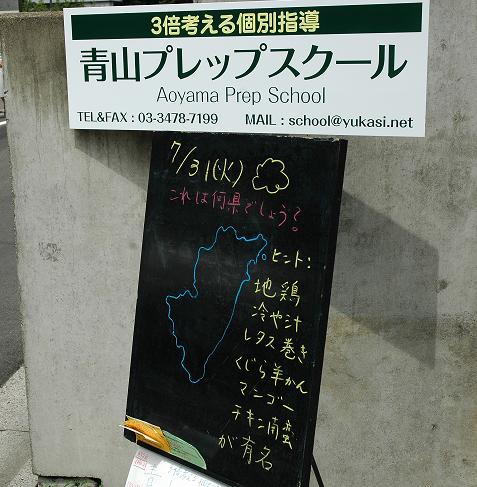 3倍考える個別指導
青山プレップスクール
Aoyama Prep School
TEL&FAX : 03-3478-7199 MAIL : school@yukasi.net
7/31(火)
これは何県でしょう?
ヒント:
地鶏
冷や汁
レタス巻き
くじら羊かん
マンゴー
チキン南蛮
が有名